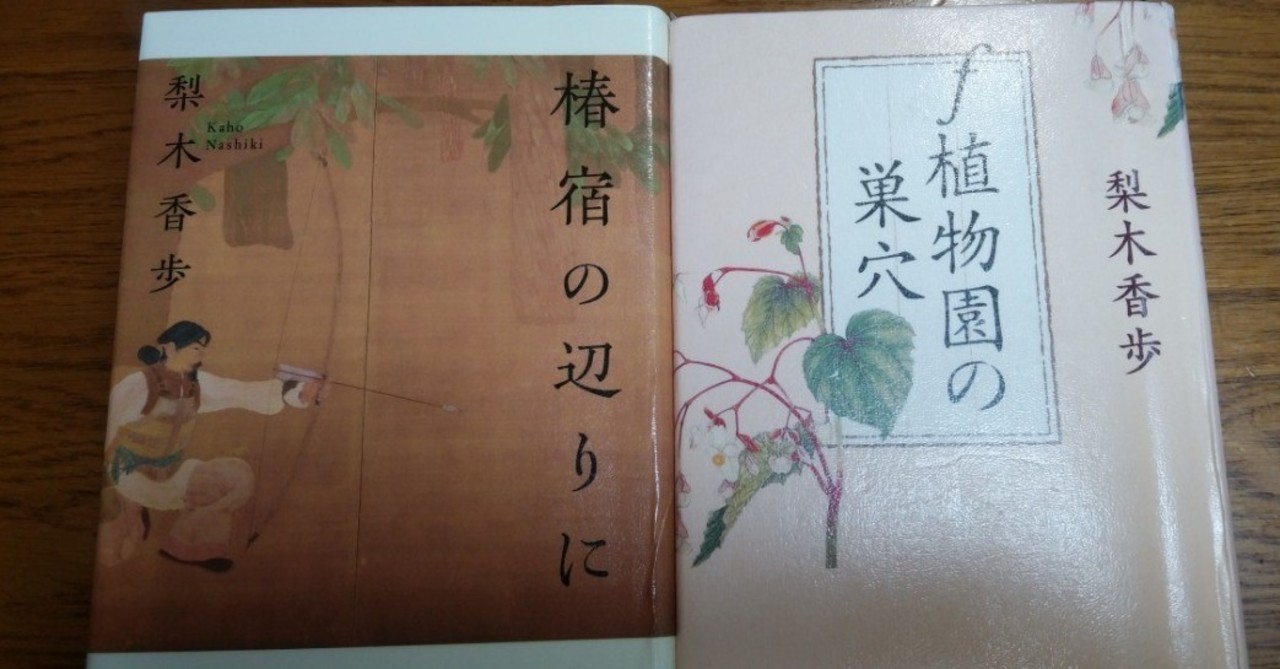 椿宿の辺りに
梨木香歩
Kaho
Nashiki
f植物園の
巣穴
梨木香歩